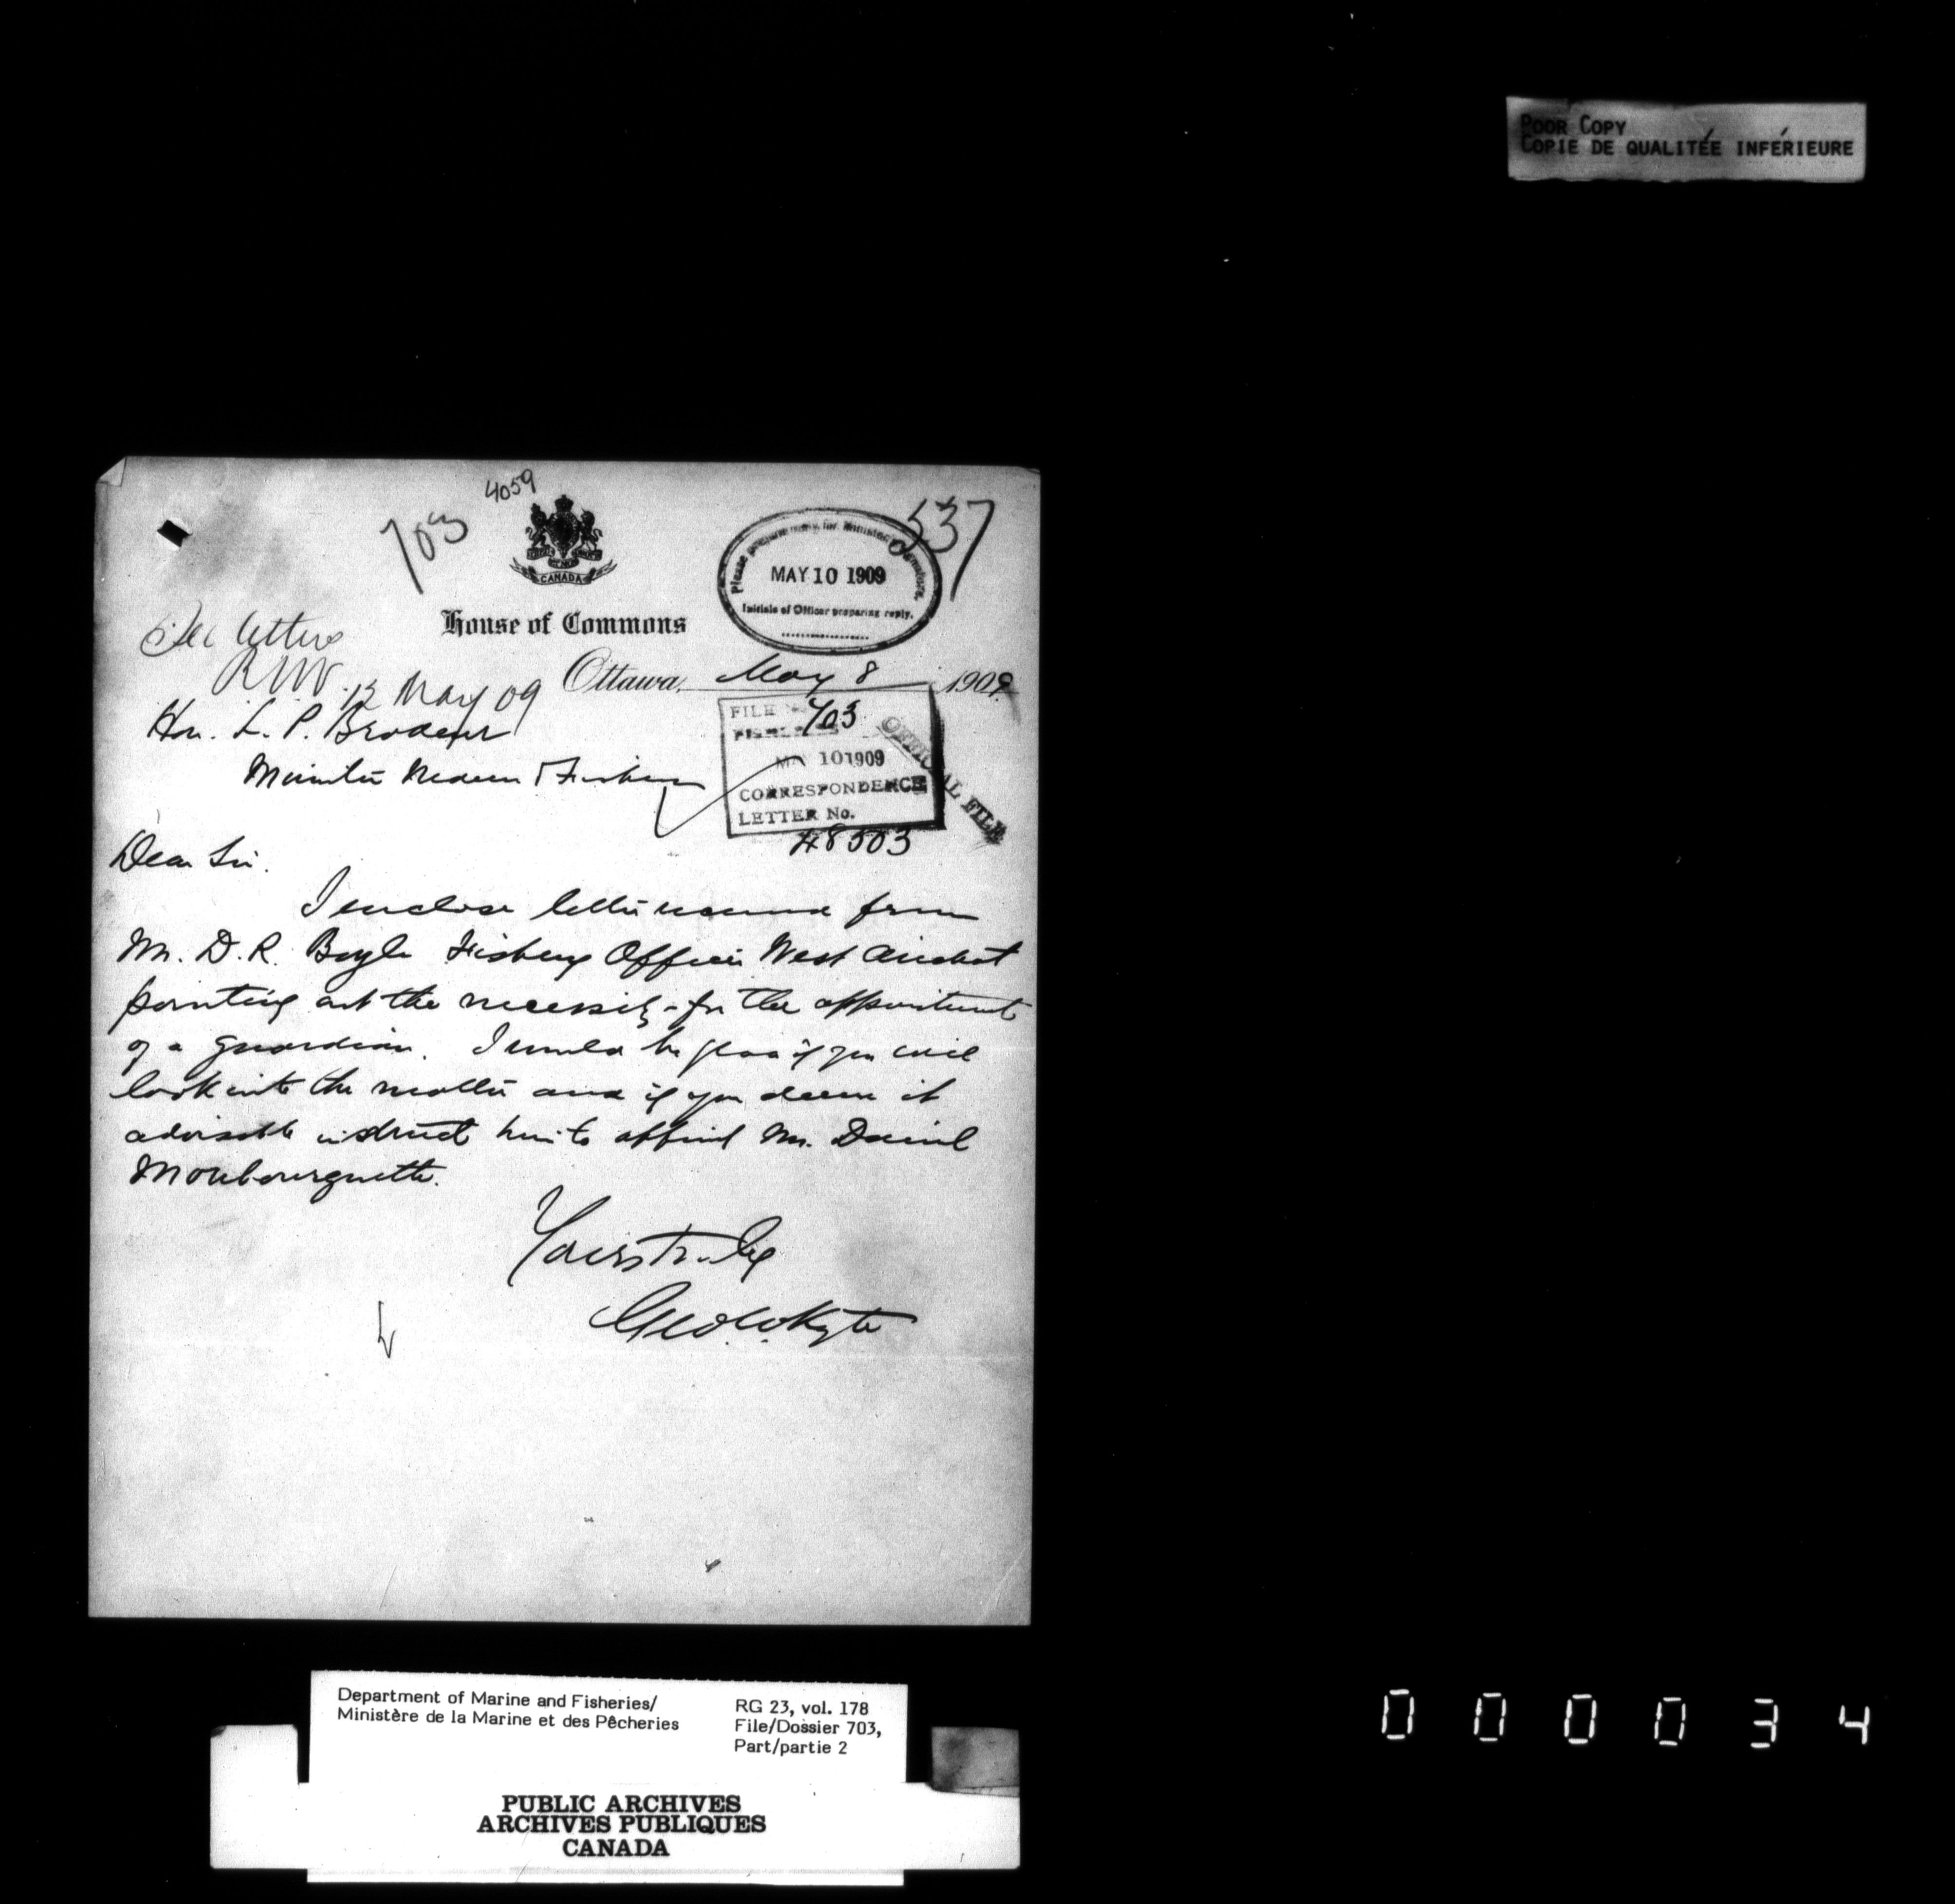 POOR COPY
COPIE DE QUALITÉE INFÉRIEURE
4059
703
537
CANADA
Please prepare reply for Minister's signature.
MAY 10 1909
Initials of Officer preparing reply.
House of Commons
See letters
RW. 12 May 09
Ottawa, May 8 1909
Hon. L. P. Brodeur
Minister Marine & Fisheries
FILE 703
FISHERIES
MAY 10 1909
CORRESPONDENCE
LETTER No.
48503
OFFICIAL FILE
Dear Sir.
I enclose letter received from
Mr. D. R. Boyle Fishery Officer West Arichat
pointing out the necessity for the appointment
of a guardian. I would be glad if you will
look into the matter and if you deem it
advisable instruct him to appoint Mr. Daniel
Monbourquette.
Yours truly
Geo. W. Kyte
Department of Marine and Fisheries/
Ministère de la Marine et des Pêcheries
RG 23, vol. 178
File/Dossier 703,
Part/partie 2
PUBLIC ARCHIVES
ARCHIVES PUBLIQUES
CANADA
000034